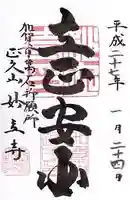 平成二十七年 一月二十四日
立正安国
加賀百万石祈願所
正久山 妙立寺